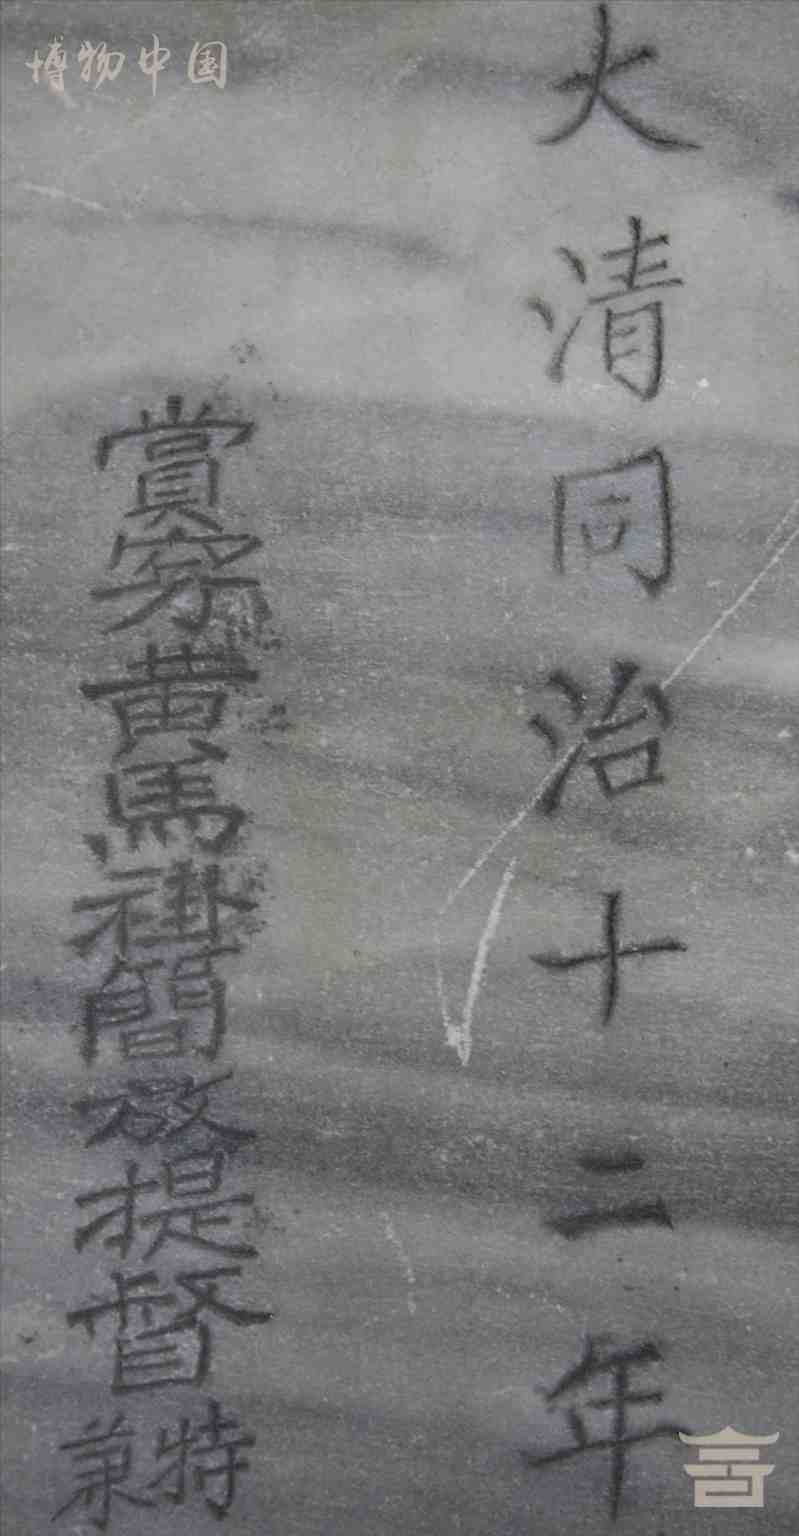 博物中国
大清同治十二年
賞穿黄馬褂簡放提督特
兼